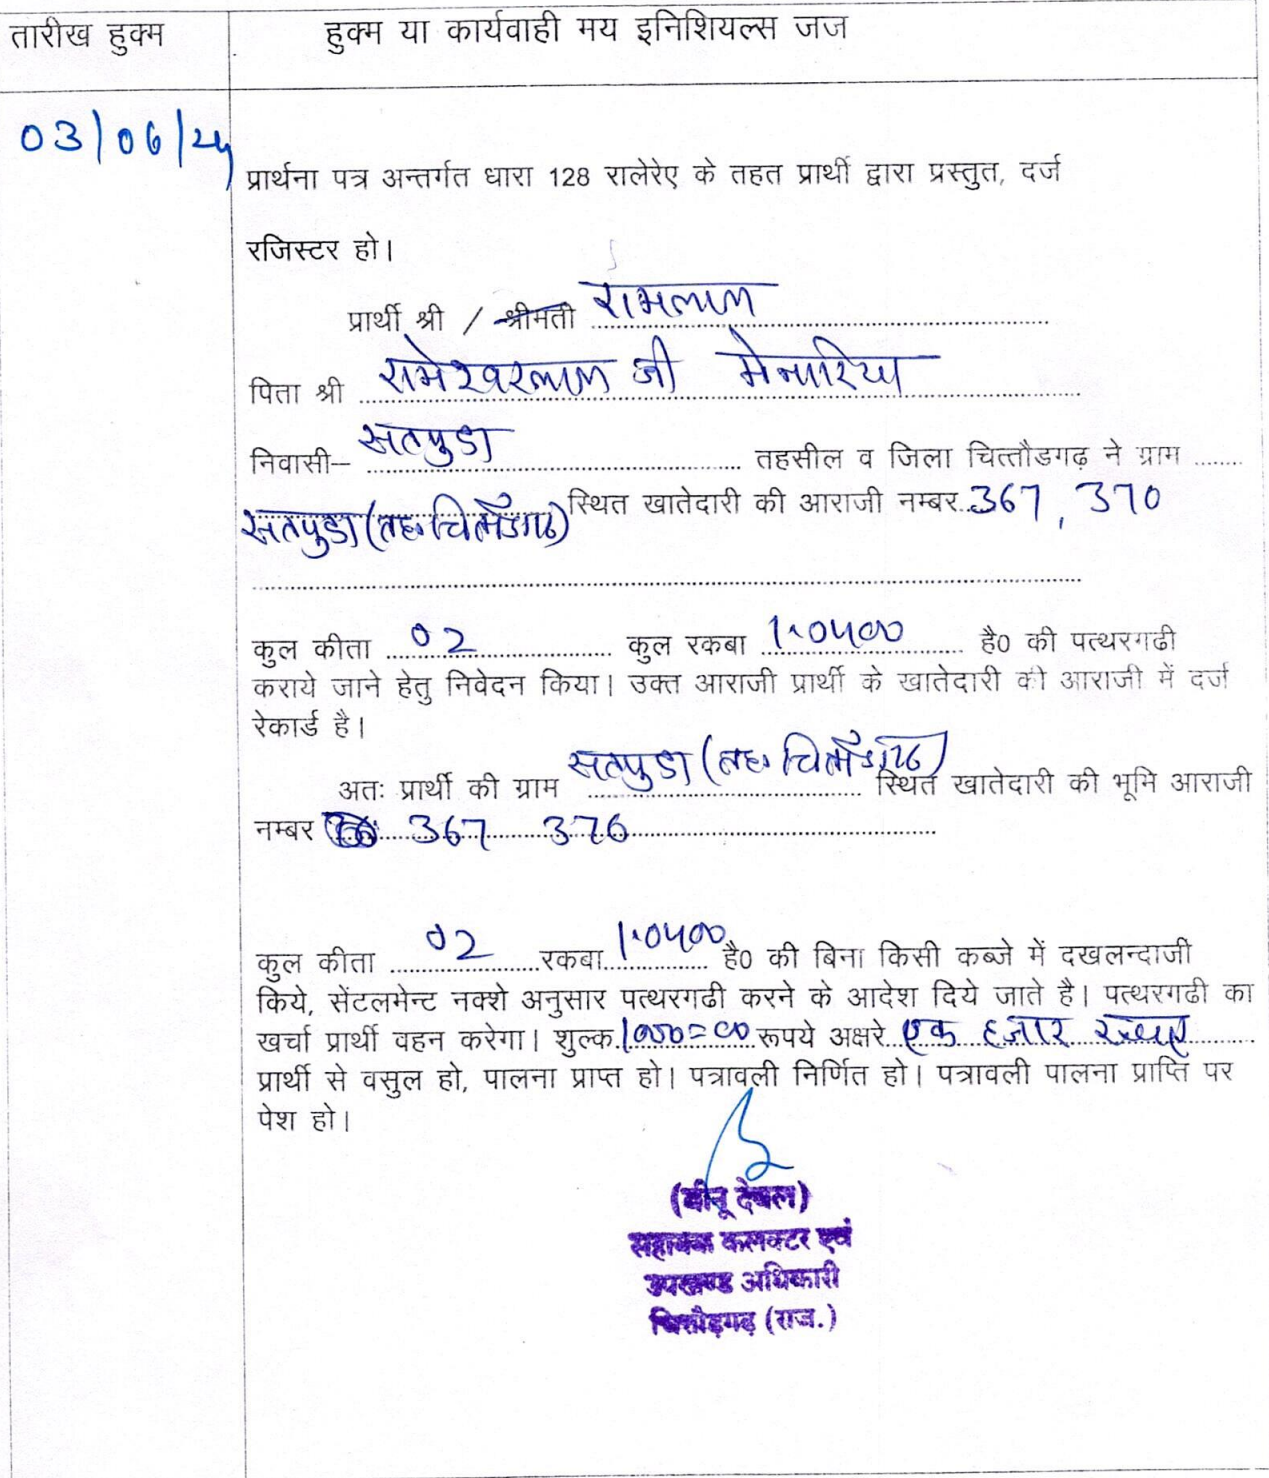 तारीख हुक्म	हुक्म या कार्यवाही मय इनिशियल्स जज
03/06/24
प्रार्थना पत्र अन्तर्गत धारा 128 रालेरेए के तहत प्रार्थी द्वारा प्रस्तुत, दर्ज
रजिस्टर हो।
प्रार्थी श्री / श्रीमती रामलाल
पिता श्री रामेश्वरलाल जी मेनारिया
निवासी– सतपुडा तहसील व जिला चित्तौडगढ़ ने ग्राम
सतपुडा (तह० चित्तौडगढ) स्थित खातेदारी की आराजी नम्बर 367, 370
कुल कीता 02 कुल रकबा 1.0400 है0 की पत्थरगढी
कराये जाने हेतु निवेदन किया। उक्त आराजी प्रार्थी के खातेदारी की आराजी में दर्ज
रेकार्ड है।
अतः प्रार्थी की ग्राम सतपुडा (तह० चित्तौडगढ) स्थित खातेदारी की भूमि आराजी
नम्बर 367 370
कुल कीता 02 रकबा 1.0400 है0 की बिना किसी कब्जे में दखलन्दाजी
किये, सेंटलमेन्ट नक्शे अनुसार पत्थरगढी करने के आदेश दिये जाते है। पत्थरगढी का
खर्चा प्रार्थी वहन करेगा। शुल्क 1000=00 रूपये अक्षरे एक हजार रूपए
प्रार्थी से वसुल हो, पालना प्राप्त हो। पत्रावली निर्णित हो। पत्रावली पालना प्राप्ति पर
पेश हो।
(बीनू देवल)
सहायक कलक्टर एवं
उपखण्ड अधिकारी
चित्तौड़गढ़ (राज.)